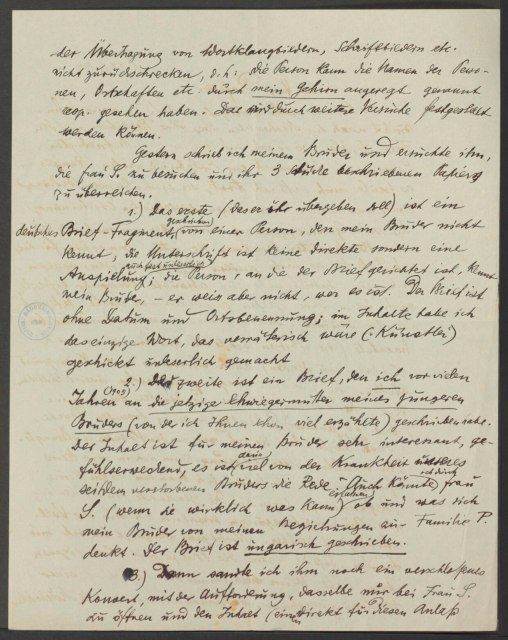 der Übertragung von Wortklangbildern, Schriftbildern etc.
nicht zurückschrecken, d.h: die Person kann die Namen der Perso-
nen, Ortschaften etc. durch mein Gehirn angeregt genannt
resp. gesehen haben. Das wird durch weitere Versuche festgestellt
werden können.
Gestern schrieb ich meinem Bruder und ersuchte ihn,
die Frau S. zu besuchen und ihr 3 Stücke beschriebenen Papiers
zu überreichen.
1.) Das erste (Das er ihr übergeben soll) ist ein
geschrieben
deutsches Brief-Fragment, von einer Person, den mein Bruder nicht
kennt, die Unterschrift ist keine direkte sondern eine
auch fast unleserlich
Anspielung; die Person, an die der Brief gerichtet ist, kennt
mein Bruder, – er weis aber nicht, wer es ist. Der Brief ist
ohne Datum und Ortsbenennung; im Inhalte habe ich
das einzige Wort, das verräterisch wäre (: Künstler)
geschickt unleserlich gemacht
2.) Das zweite ist ein Brief, den ich vor vielen
Jahren an die jetzige Schwiegermutter meines jüngeren
Bruders (von der ich Ihnen schon viel erzählte) geschrieben habe.
Der Inhalt ist für meinen Bruder sehr interessant, ge-
fühlserweckend, es ist viel von der Krankheit
seitdem verstorbenen Bruders die Rede. Auch könnte Frau
S. (wenn sie wirklich was kann) ob und was sich
mein Bruder von meinen Beziehungen zur Familie P.
denkt. Der Brief ist ungarisch geschrieben.
3.) Dann sandte ich ihm noch ein verschlossenes
Kouvert, mit der Aufforderung, dasselbe nur bei Frau S.
zu öffnen und den Inhalt (einen direkt für diesen Anlaß